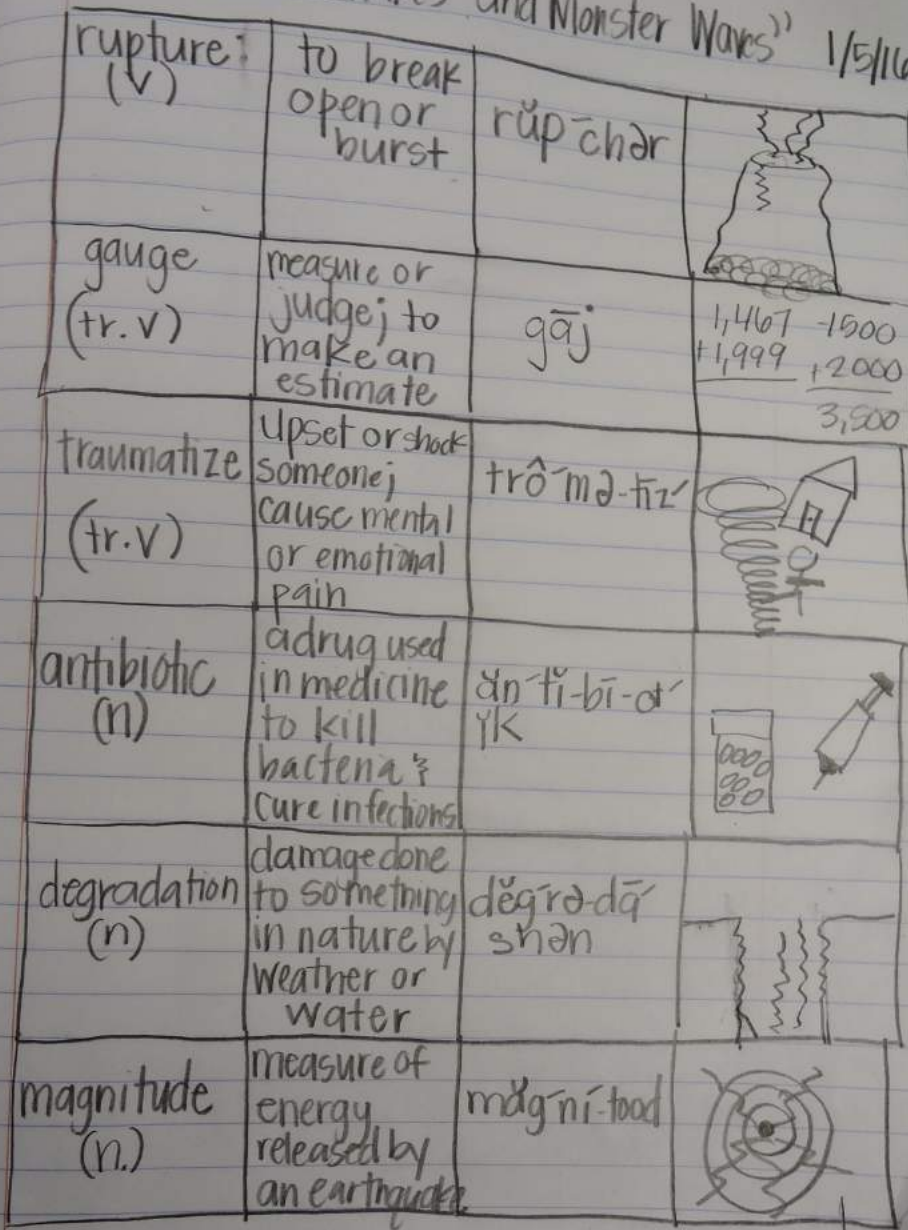 and Monster Waves" 1/5/16
rupture:
(v)
to break
open or
burst
rŭp-chər
gauge
(tr. v)
measure or
judge; to
make an
estimate
gāj
1,467 -1500
+1,999 +2000
3,500
traumatize
(tr. v)
upset or shock
someone;
cause mental
or emotional
pain
trô-mə-tīz′
antibiotic
(n)
a drug used
in medicine
to kill
bacteria &
cure infections
ăn-tĭ-bī-ŏt′
ĭk
degradation
(n)
damage done
to something
in nature by
weather or
water
dĕg-rə-dā′
shən
magnitude
(n.)
measure of
energy
released by
an earthquake
măg-nĭ-tood